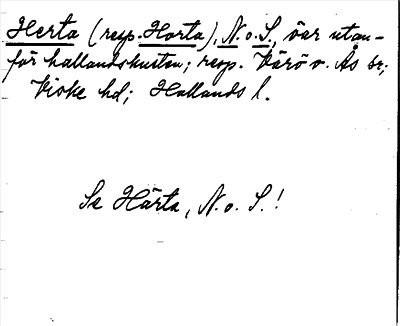 Herta (resp. Horta), N. o. S., öar utan-
för hallandskusten; resp. Värö o. Ås sr;
Viske hd; Hallands l.
Se Härta, N. o. S.!